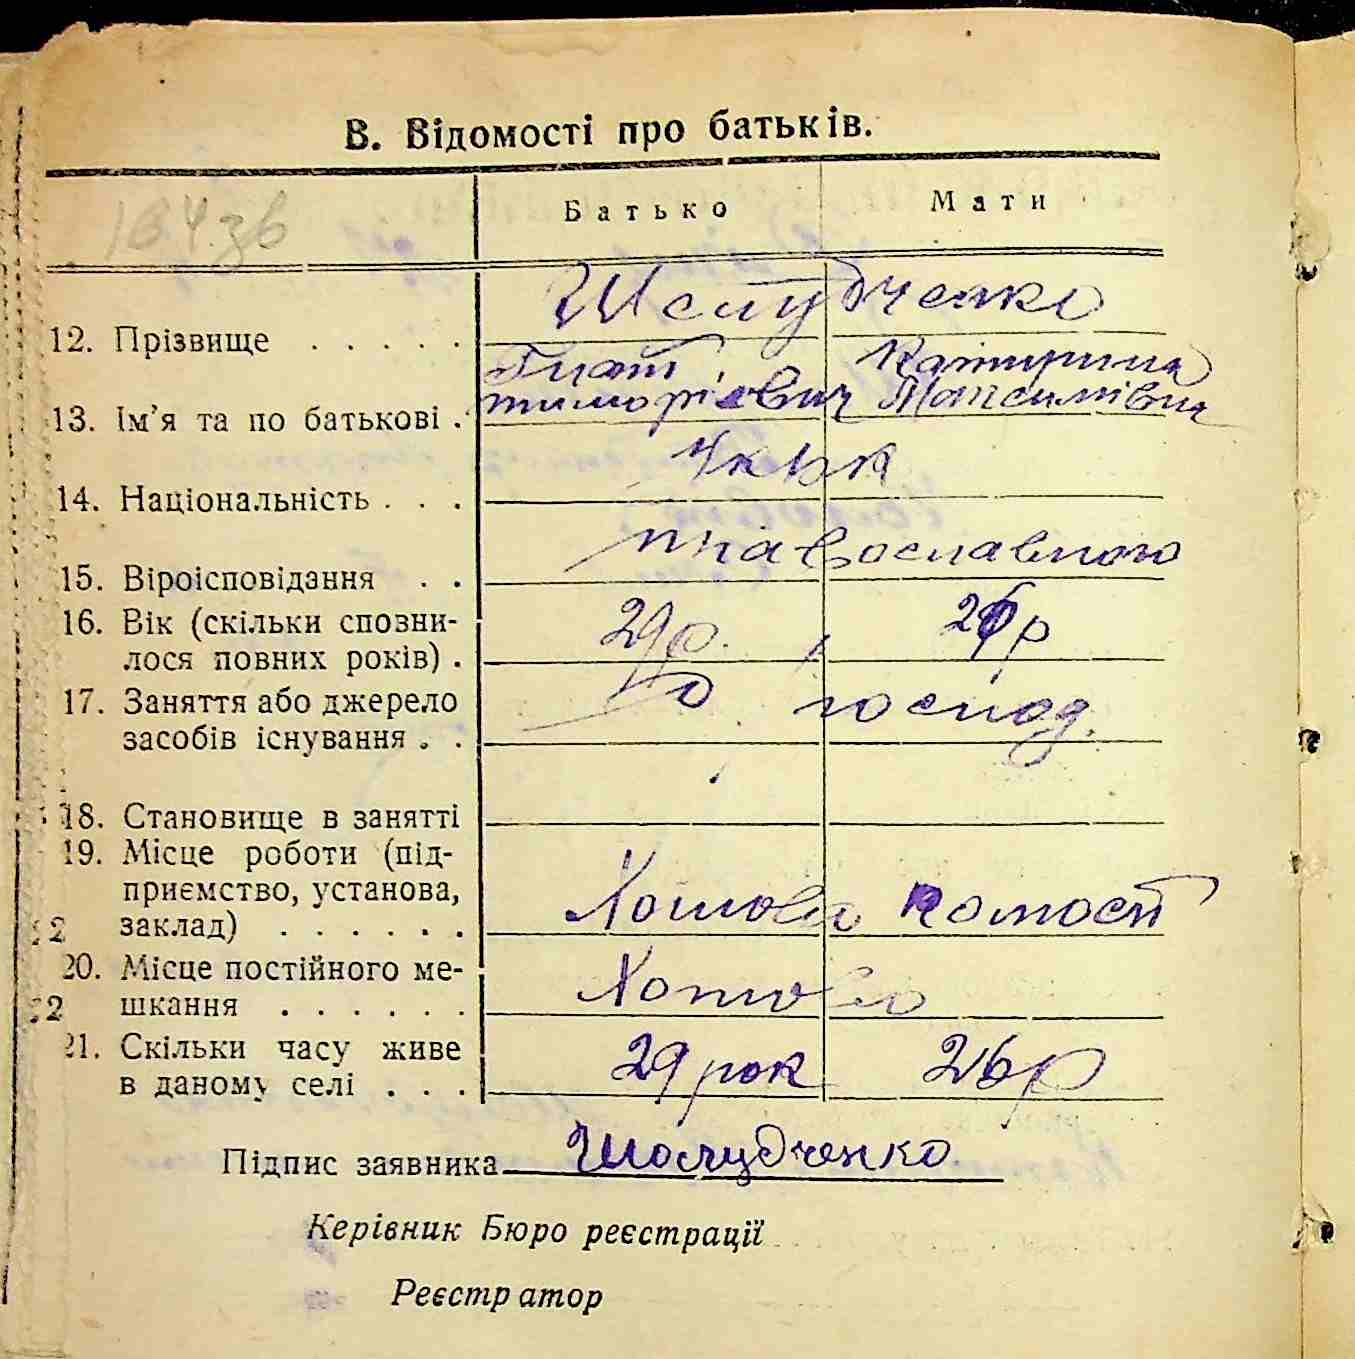 В. Відомості про батьків.
Батько Мати
12. Прізвище . . . . . Шелудченко
Гнат Катирина
13. Ім'я та по батькові . тиморієвич Максимівна
14. Національність . . . Укък
15. Віроісповідання . . православною
16. Вік (скільки сповни-
лося повних років) . 29 р. 26 р
17. Заняття або джерело
засобів існування . . господ.
18. Становище в занятті
19. Місце роботи (під-
приємство, установа,
заклад) . . . . . . Хотово
20. Місце постійного ме-
шкання . . . . . . Хотово
21. Скільки часу живе
в даному селі . . . 29 рок 26 р
Підпис заявника Шолудченко
Керівник Бюро реєстрації
Реєстратор